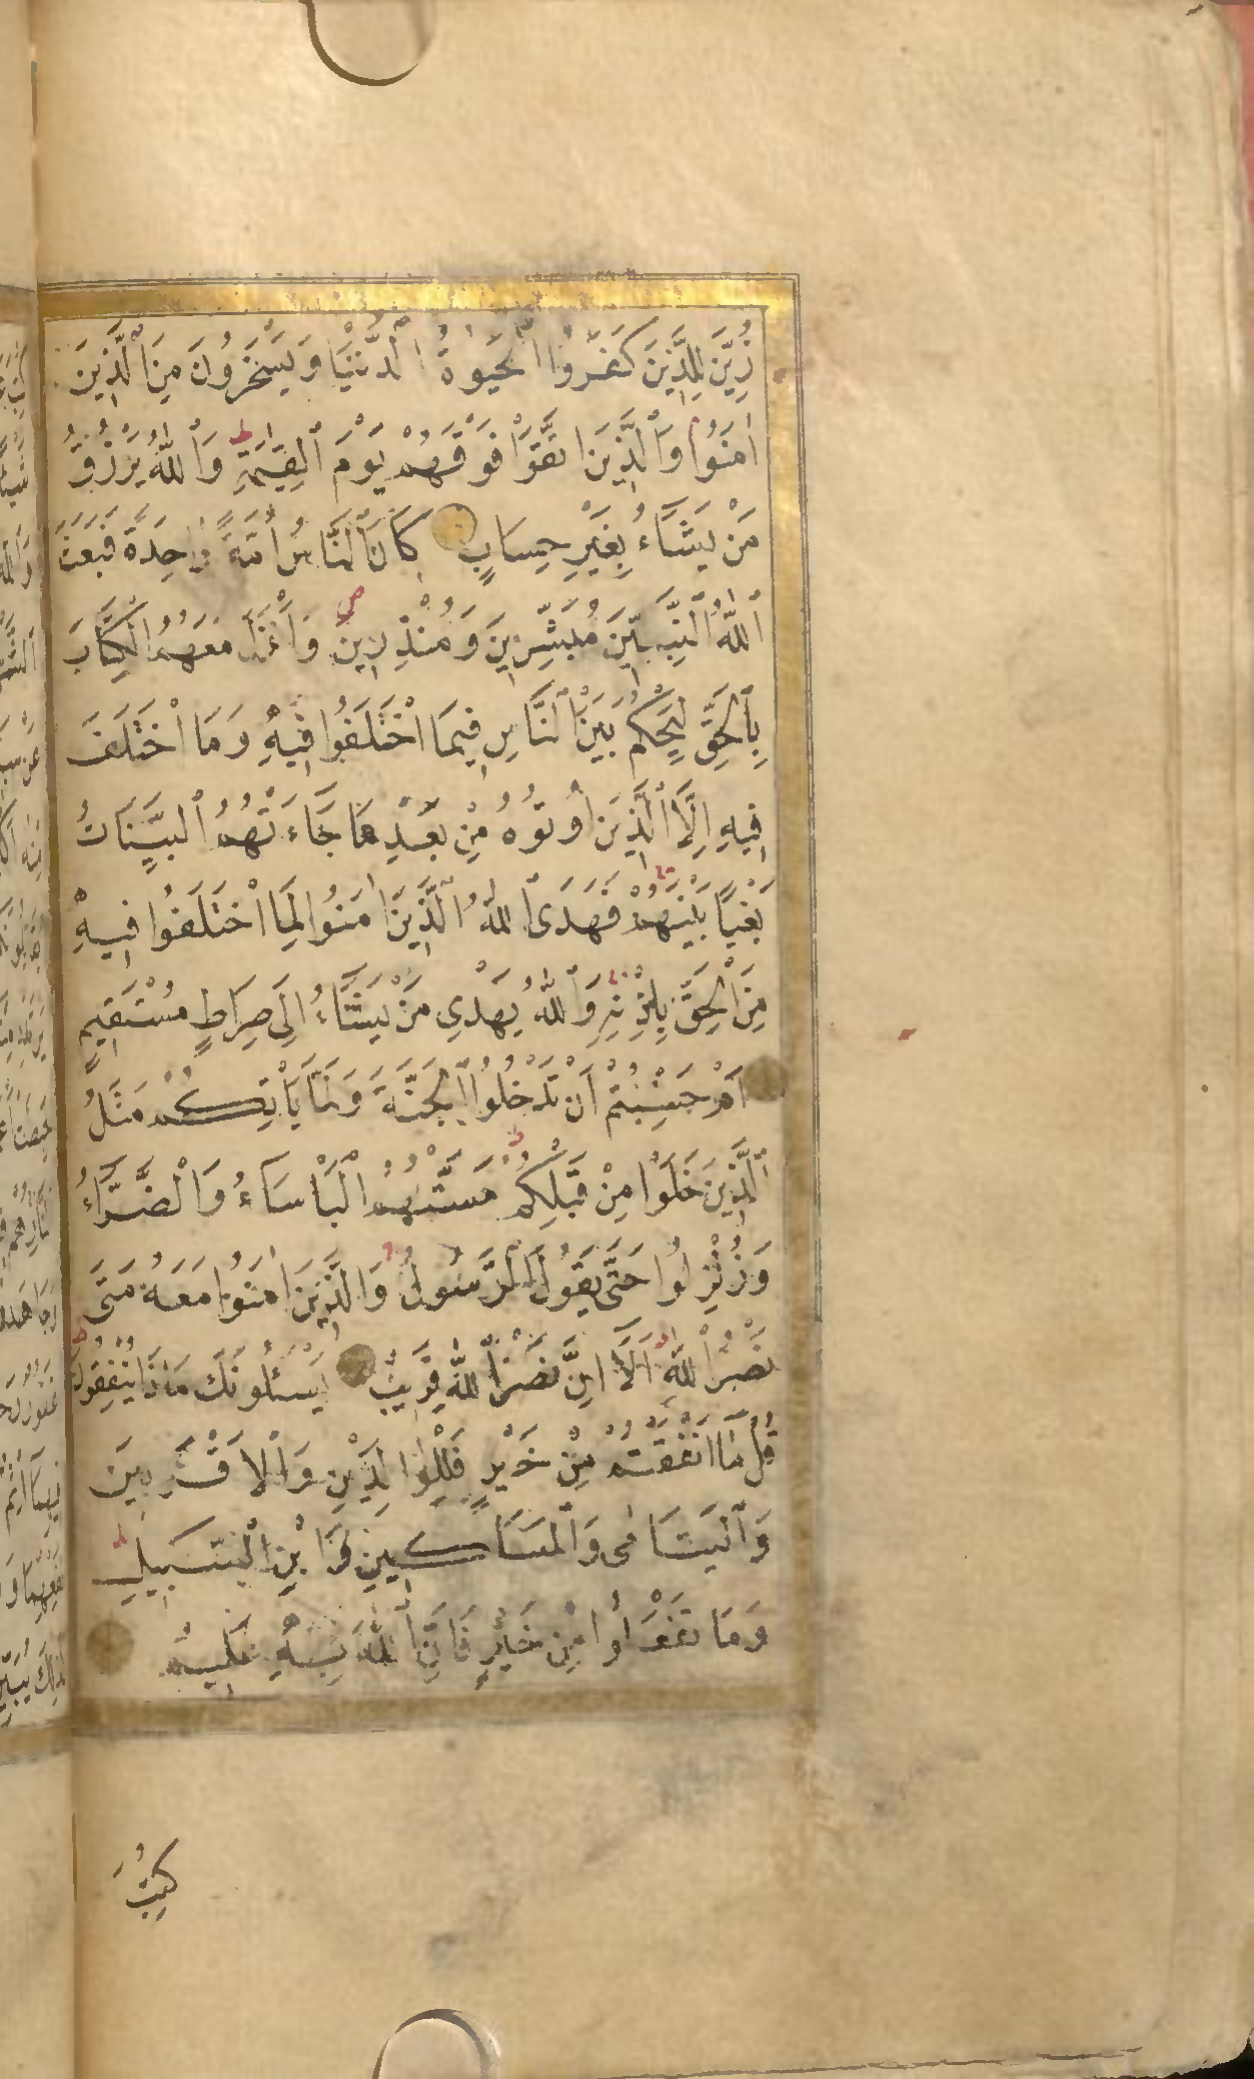 زُيِّنَ لِلَّذِينَ كَفَرُوا ٱلْحَيٰوةُ ٱلدُّنْيَا وَيَسْخَرُونَ مِنَ ٱلَّذِينَ
اٰمَنُوا وَٱلَّذِينَ اتَّقَوْا فَوْقَهُمْ يَوْمَ ٱلْقِيٰمَةِ ط وَٱللّٰهُ يَرْزُقُ
مَنْ يَشَاءُ بِغَيْرِ حِسَابٍ كَانَ ٱلنَّاسُ أُمَّةً وٰحِدَةً فَبَعَثَ
ٱللّٰهُ ٱلنَّبِيّٖنَ مُبَشِّرِينَ وَمُنْذِرِينَ ص وَأَنْزَلَ مَعَهُمُ الْكِتَابَ
بِٱلْحَقِّ لِيَحْكُمَ بَيْنَ ٱلنَّاسِ فِيمَا اخْتَلَفُوا فِيهِ وَمَا اخْتَلَفَ
فِيهِ اِلَّا ٱلَّذِينَ أُوتُوهُ مِنْ بَعْدِ مَا جَاءَتْهُمُ ٱلْبَيِّنَاتُ
بَغْيًا بَيْنَهُمْ فَهَدَى ٱللّٰهُ ٱلَّذِينَ اٰمَنُوا لِمَا اخْتَلَفُوا فِيهِ
مِنَ ٱلْحَقِّ بِاِذْنِهِ وَٱللّٰهُ يَهْدِي مَنْ يَشَاءُ اِلَى صِرَاطٍ مُسْتَقِيمٍ
اَمْ حَسِبْتُمْ اَنْ تَدْخُلُوا ٱلْجَنَّةَ وَلَمَّا يَأْتِكُمْ مَثَلُ
ٱلَّذِينَ خَلَوْا مِنْ قَبْلِكُمْ ط مَسَّتْهُمُ ٱلْبَأْسَاءُ وَالْضَّرَّاءُ
وَزُلْزِلُوا حَتَّى يَقُولَ ٱلرَّسُولُ وَالَّذِينَ اٰمَنُوا مَعَهُ مَتَى
نَصْرُ ٱللّٰهِ ط اَلَا اِنَّ نَصْرَ ٱللّٰهِ قَرِيبٌ يَسْئَلُونَكَ مَاذَا يُنْفِقُونَ ط
قُلْ مَا اَنْفَقْتُمْ مِنْ خَيْرٍ فَلِلْوٰلِدَيْنِ وَٱلْاَقْرَبِينَ
وَٱلْيَتَامٰى وَٱلْمَسَاكِينِ وَابْنِ ٱلسَّبِيلِ ط
وَمَا تَفْعَلُوا مِنْ خَيْرٍ فَاِنَّ ٱللّٰهَ بِهِ عَلِيمٌ
كُتِبَ